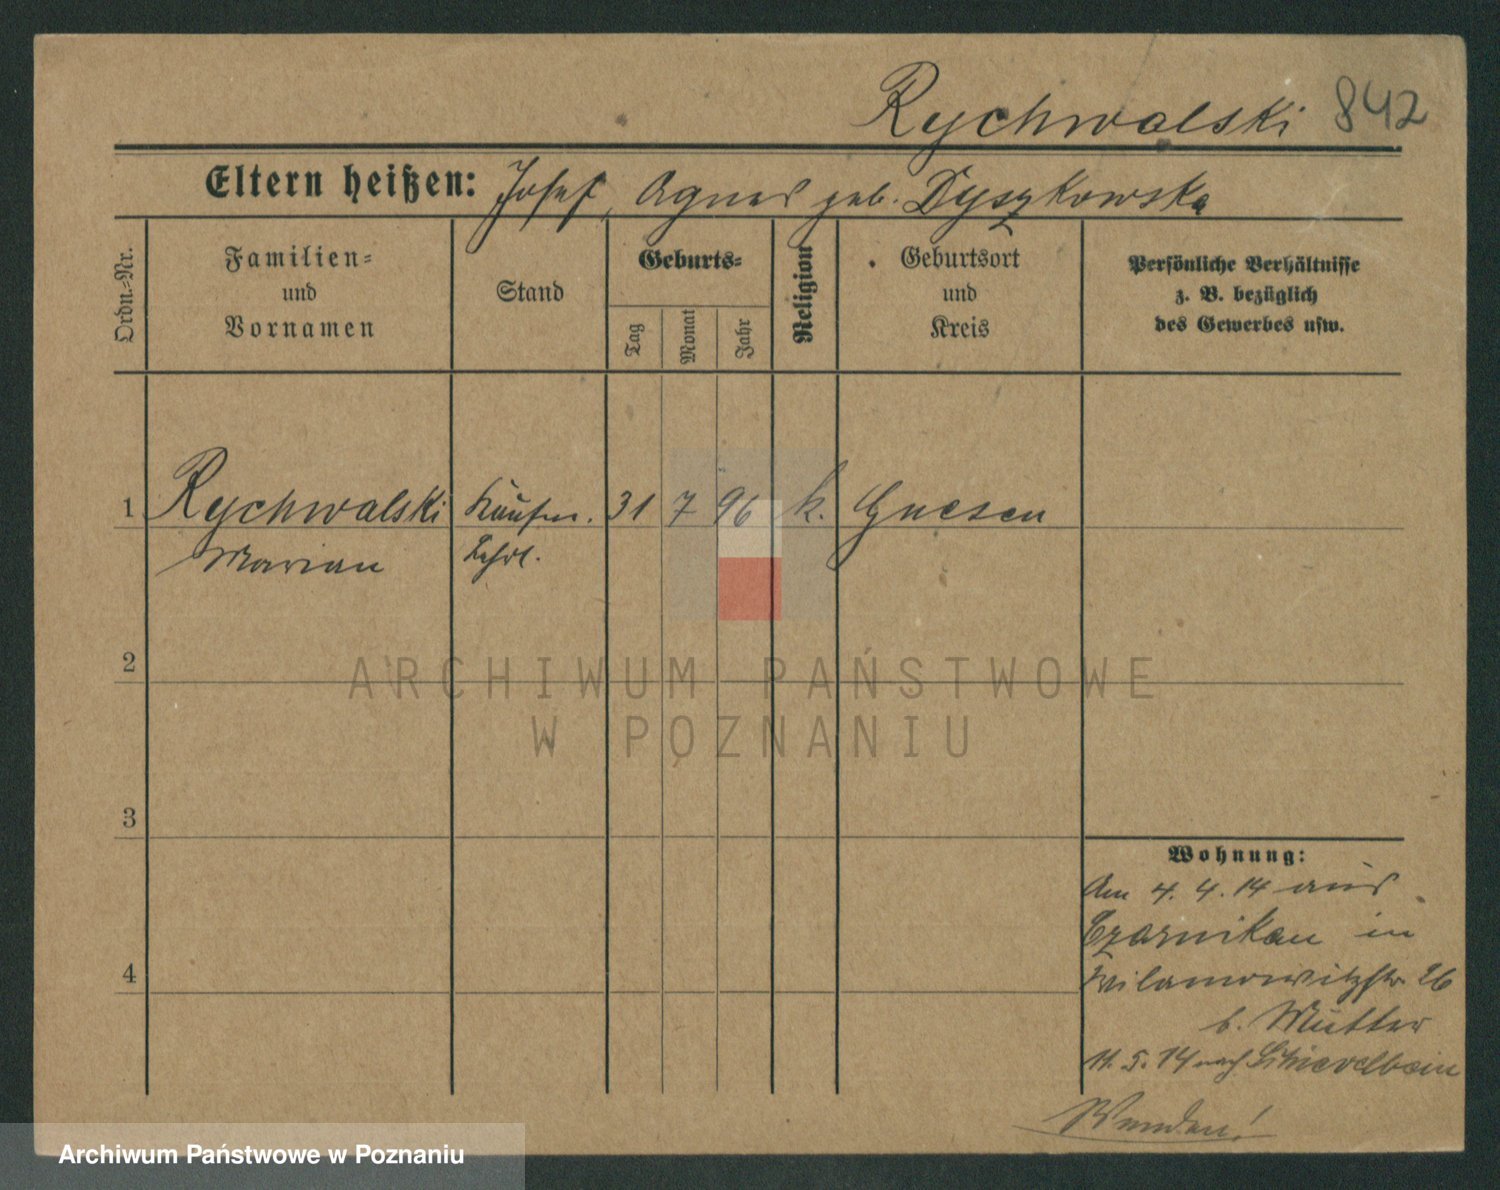 Rychwalski 842
Eltern heißen: Josef, Agnes geb. Dyszkowska
Ordn.-Nr.
Familien-
und
Vornamen
Stand
Geburts-
Tag
Monat
Jahr
Religion
Geburtsort
und
Kreis
Persönliche Verhältnisse
z. B. bezüglich
des Gewerbes usw.
1 Rychwalski Kaufm. 31 7 96 k. Gnesen
Marian Lehrl.
2
3
4
Wohnung:
Am 4. 4. 14 aus
Czarnikau in
Wilamowitzstr 26
b. Mutter
11. 5. 14 nach Schievelbein
Wenden!
ARCHIWUM PAŃSTWOWE
W POZNANIU
Archiwum Państwowe w Poznaniu